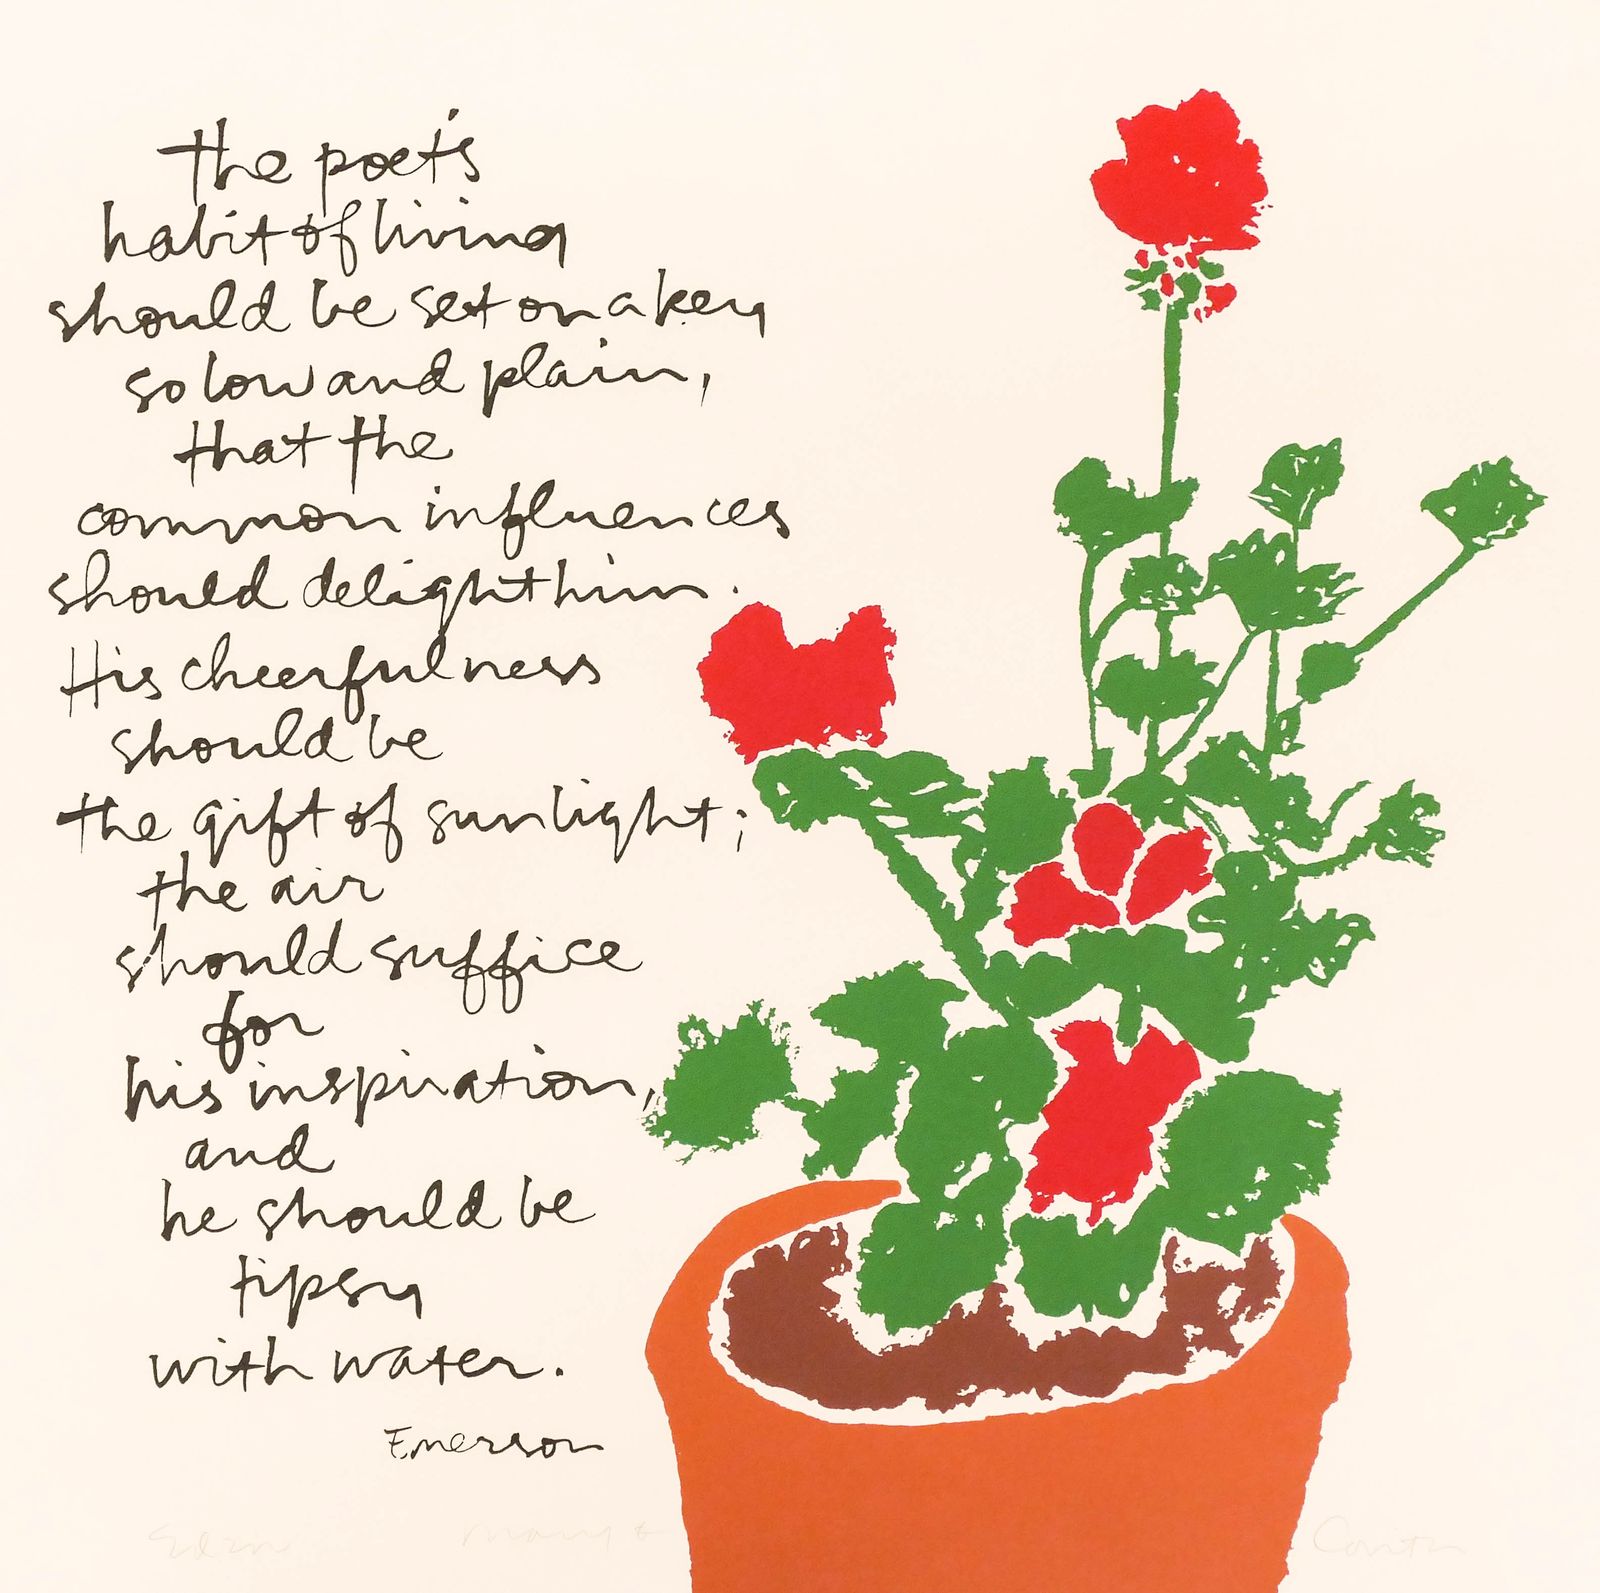 the poet's
habit of living
should be set on a key
so low and plain,
that the
common influences
should delight him.
His cheerfulness
should be
the gift of sunlight;
the air
should suffice
for
his inspiration,
and
he should be
tipsy
with water.
Emerson